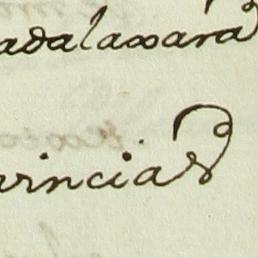 adalaxara
vincias